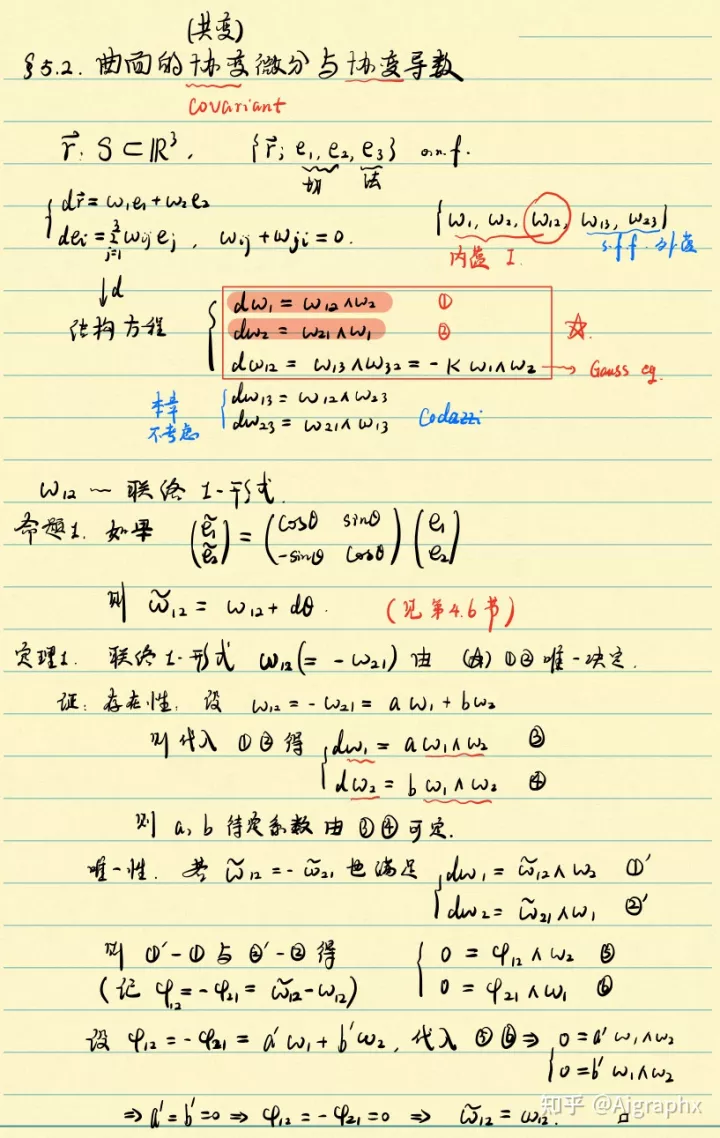 (共变)
§5.2. 曲面的协变微分与协变导数
covariant
r⃗: S ⊂ ℝ³, {r⃗; e₁, e₂, e₃} o.n.f.
切 法
{ dr⃗ = ω₁e₁ + ω₂e₂
deᵢ = Σ_{j=1}^{3} ωᵢⱼeⱼ, ωᵢⱼ + ωⱼᵢ = 0.
{ω₁, ω₂, ω₁₂, ω₁₃, ω₂₃}
内蕴 I. s.f.f. 外蕴
↓d
结构方程
{ dω₁ = ω₁₂∧ω₂ ①
dω₂ = ω₂₁∧ω₁ ② ☆
dω₁₂ = ω₁₃∧ω₃₂ = -K ω₁∧ω₂ → Gauss eq.
本章不考虑
{ dω₁₃ = ω₁₂∧ω₂₃
dω₂₃ = ω₂₁∧ω₁₃ Codazzi
ω₁₂ — 联络1-形式.
命题1. 如果 (ẽ₁ ẽ₂) = (cosθ sinθ -sinθ cosθ)(e₁ e₂)
则 ω̃₁₂ = ω₁₂ + dθ. (见第4.6节)
定理1. 联络1-形式 ω₁₂(= -ω₂₁) 由 (☆) ①② 唯一决定.
证: 存在性: 设 ω₁₂ = -ω₂₁ = aω₁ + bω₂
则代入 ①② 得 { dω₁ = a ω₁∧ω₂ ③
dω₂ = b ω₁∧ω₂ ④
则 a, b 待定系数由 ③④ 可定.
唯一性. 若 ω̃₁₂ = -ω̃₂₁ 也满足 { dω₁ = ω̃₁₂∧ω₂ ①′
dω₂ = ω̃₂₁∧ω₁ ②′
则 ①′-① 与 ②′-② 得 { 0 = φ₁₂∧ω₂ ⑤
(记 φ₁₂ = -φ₂₁ = ω̃₁₂-ω₁₂) 0 = φ₂₁∧ω₁ ⑥
设 φ₁₂ = -φ₂₁ = a′ω₁ + b′ω₂, 代入 ⑤⑥ ⇒ { 0 = a′ω₁∧ω₂
0 = b′ω₁∧ω₂
⇒ a′ = b′ = 0 ⇒ φ₁₂ = -φ₂₁ = 0 ⇒ ω̃₁₂ = ω₁₂. □
知乎 @Aigraphx